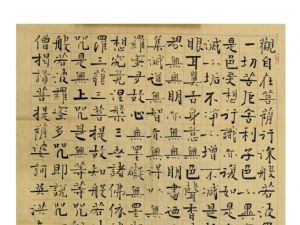 觀自在菩薩行深般若波
一切苦厄舍利子色不
是色受想行識亦復如
滅不垢不淨不增不減是
眼耳鼻舌身意無色聲香
界無無明亦無無明盡
集滅道無智亦無得
羅蜜多故心無罣礙無
想究竟涅槃三世諸佛依
羅三藐三菩提故知般若
咒是無上咒是無等等咒
般若波羅蜜多咒即說咒
僧揭諦菩提薩婆訶